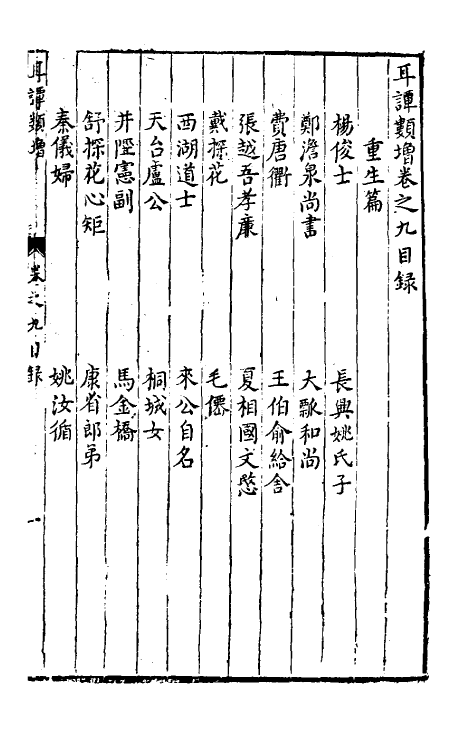 耳譚類增卷之九目録
重生篇
楊俊士　長興姚氏子
鄭澹泉尚書　大瓢和尚
費唐衢　王伯俞給舍
張越吾孝廉　夏相國文愍
戴探花　毛僊
西湖道士　來公自名
天台盧公　桐城女
井陘憲副　馬金橋
舒探花心矩　康省郎弟
秦儀婦　姚汝循
耳譚類增　卷之九目録　一